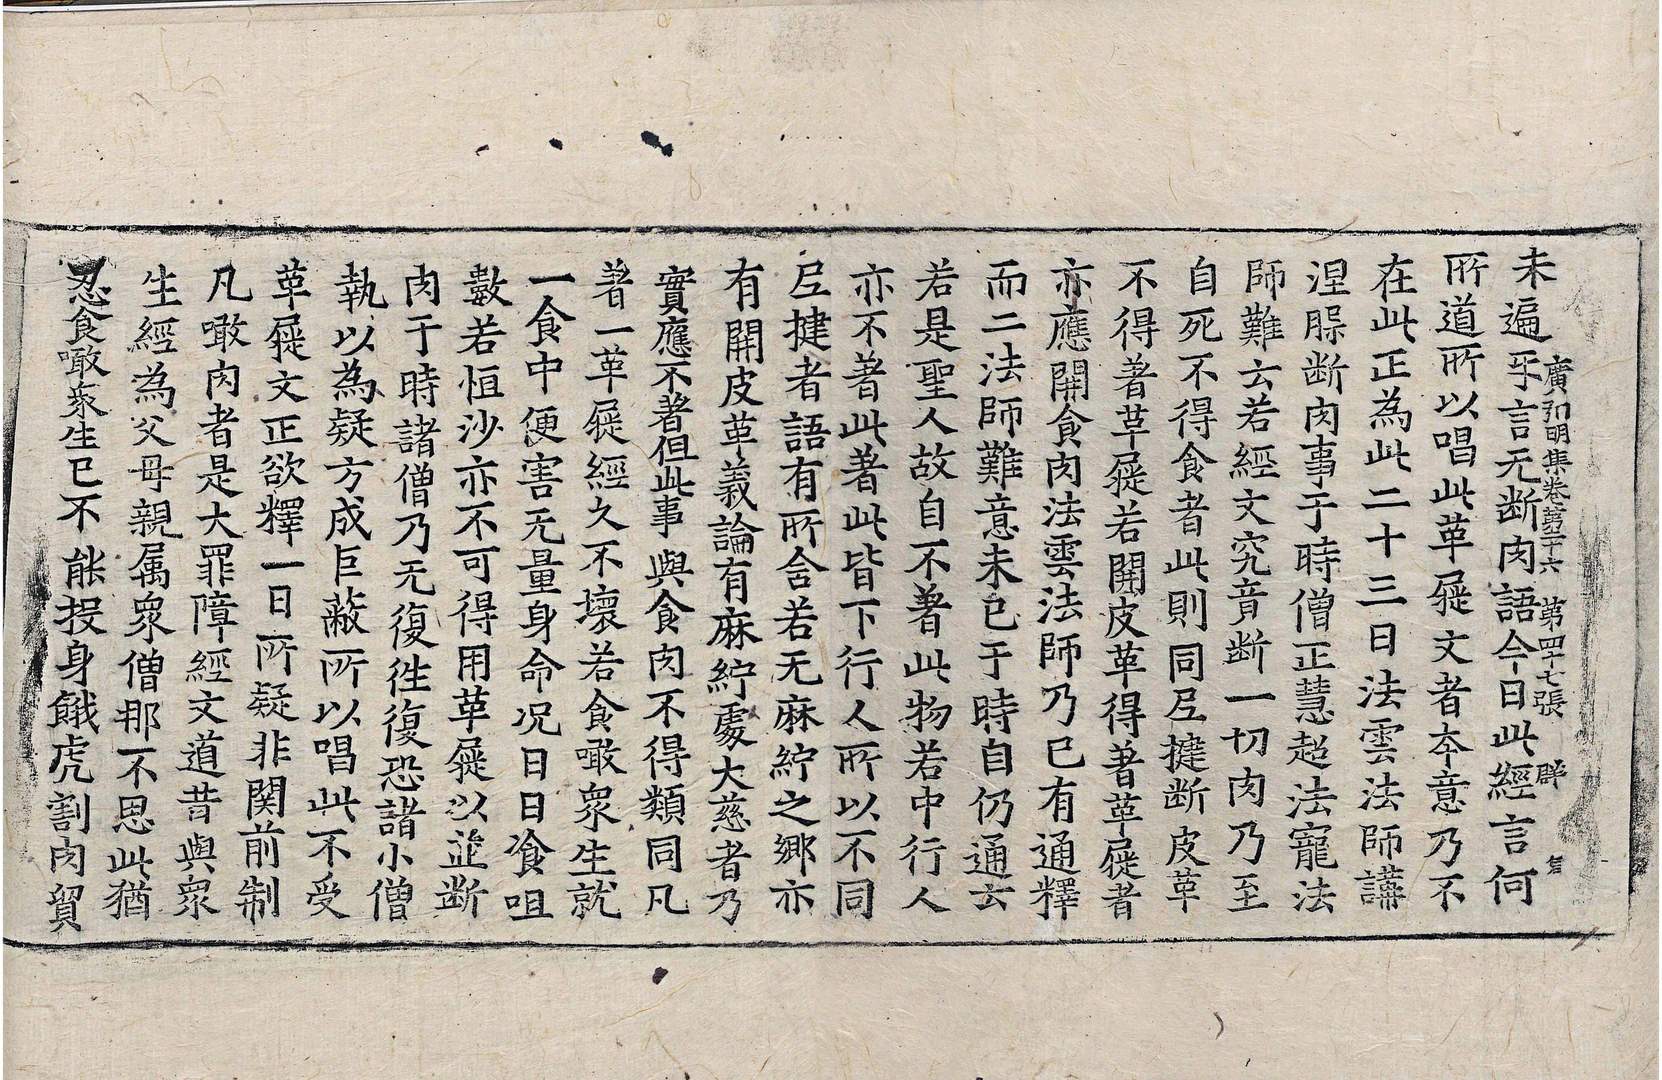 廣弘明集卷第二十六 第四十七張 群
未遍乎言无断肉語今日此經言何
所道所以唱此革屣文者本意乃不
在此正為此二十三日法雲法師講
涅槃断肉事于時僧正慧超法寵法
師難云若經文究竟断一切肉乃至
自死不得食者此則同尼揵断皮革
不得著革屣若開皮革得著革屣者
亦應開食肉法雲法師乃已有通釋
而二法師難意未已于時自仍通云
若是聖人故自不著此物若中行人
亦不著此著此皆下行人所以不同
尼揵者語有所含若无麻紵之鄉亦
有開皮革義論有麻紵處大慈者乃
實應不著但此事與食肉不得類同凡
著一革屣經久不壞若食噉眾生就
一食中便害无量身命况日日飡咀
數若恒沙亦不可得用革屣以並断
肉于時諸僧乃无復徃復恐諸小僧
執以為疑方成巨蔽所以唱此不受
革屣文正欲釋一日所疑非関前制
凡噉肉者是大罪障經文道昔與眾
生經為父母親属眾僧那不思此猶
忍食噉眾生已不能投身餓虎割肉貿